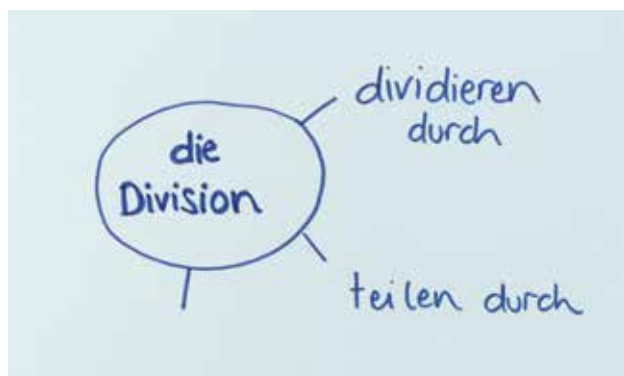 die
Division
dividieren
durch
teilen durch